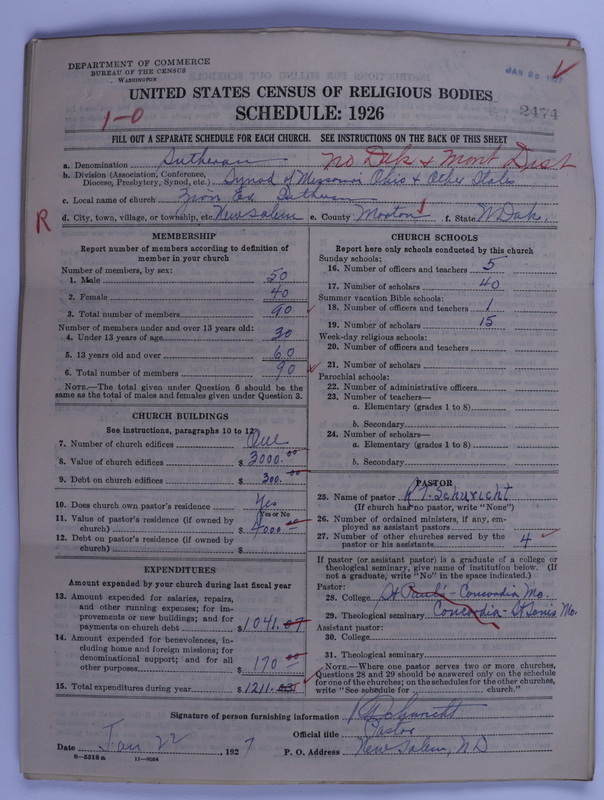 DEPARTMENT OF COMMERCE
BUREAU OF THE CENSUS
WASHINGTON
UNITED STATES CENSUS OF RELIGIOUS BODIES
SCHEDULE: 1926
1-0
2474
FILL OUT A SEPARATE SCHEDULE FOR EACH CHURCH. SEE INSTRUCTIONS ON THE BACK OF THIS SHEET
a. Denomination Lutheran No Dak & Mont Dist
b. Division (Association, Conference, Diocese, Presbytery, Synod, etc.) Synod of Missouri Ohio & Other States
c. Local name of church Zion Ev. Lutheran
R
d. City, town, village, or township, etc. New Salem e. County Morton f. State N Dak.
MEMBERSHIP
Report number of members according to definition of
member in your church
Number of members, by sex:
1. Male 50
2. Female 40
3. Total number of members 90
Number of members under and over 13 years old:
4. Under 13 years of age 30
5. 13 years old and over 60
6. Total number of members 90
NOTE.—The total given under Question 6 should be the
same as the total of males and females given under Question 3.
CHURCH BUILDINGS
See instructions, paragraphs 10 to 12
7. Number of church edifices One
8. Value of church edifices $ 3000.00
9. Debt on church edifices $ 300.00
10. Does church own pastor's residence Yes
Yes or No
11. Value of pastor's residence (if owned by
church) $ 4000.—
12. Debt on pastor's residence (if owned by
church) $
EXPENDITURES
Amount expended by your church during last fiscal year
13. Amount expended for salaries, repairs,
and other running expenses; for im-
provements or new buildings; and for
payments on church debt $ 1041.
14. Amount expended for benevolences, in-
cluding home and foreign missions; for
denominational support; and for all
other purposes $ 170 00
15. Total expenditures during year $ 1211.
CHURCH SCHOOLS
Report here only schools conducted by this church
Sunday schools:
16. Number of officers and teachers 5
17. Number of scholars 40
Summer vacation Bible schools:
18. Number of officers and teachers 1
19. Number of scholars 15
Week-day religious schools:
20. Number of officers and teachers
21. Number of scholars
Parochial schools:
22. Number of administrative officers
23. Number of teachers—
a. Elementary (grades 1 to 8)
b. Secondary
24. Number of scholars—
a. Elementary (grades 1 to 8)
b. Secondary
PASTOR
25. Name of pastor R T. Schuricht
(If church has no pastor, write "None")
26. Number of ordained ministers, if any, em-
ployed as assistant pastors
27. Number of other churches served by the
pastor or his assistants 4
If pastor (or assistant pastor) is a graduate of a college or
theological seminary, give name of institution below. (If
not a graduate, write "No" in the space indicated.)
Pastor:
28. College St Paul's - Concordia Mo.
29. Theological seminary Concordia - St Louis Mo.
Assistant pastor:
30. College
31. Theological seminary
NOTE.—Where one pastor serves two or more churches,
Questions 28 and 29 should be answered only on the schedule
for one of the churches; on the schedules for the other churches,
write "See schedule for church."
Signature of person furnishing information
Official title Pastor
Date Jan 22, 1927 P. O. Address New Salem, ND
8—5318a 11—9084